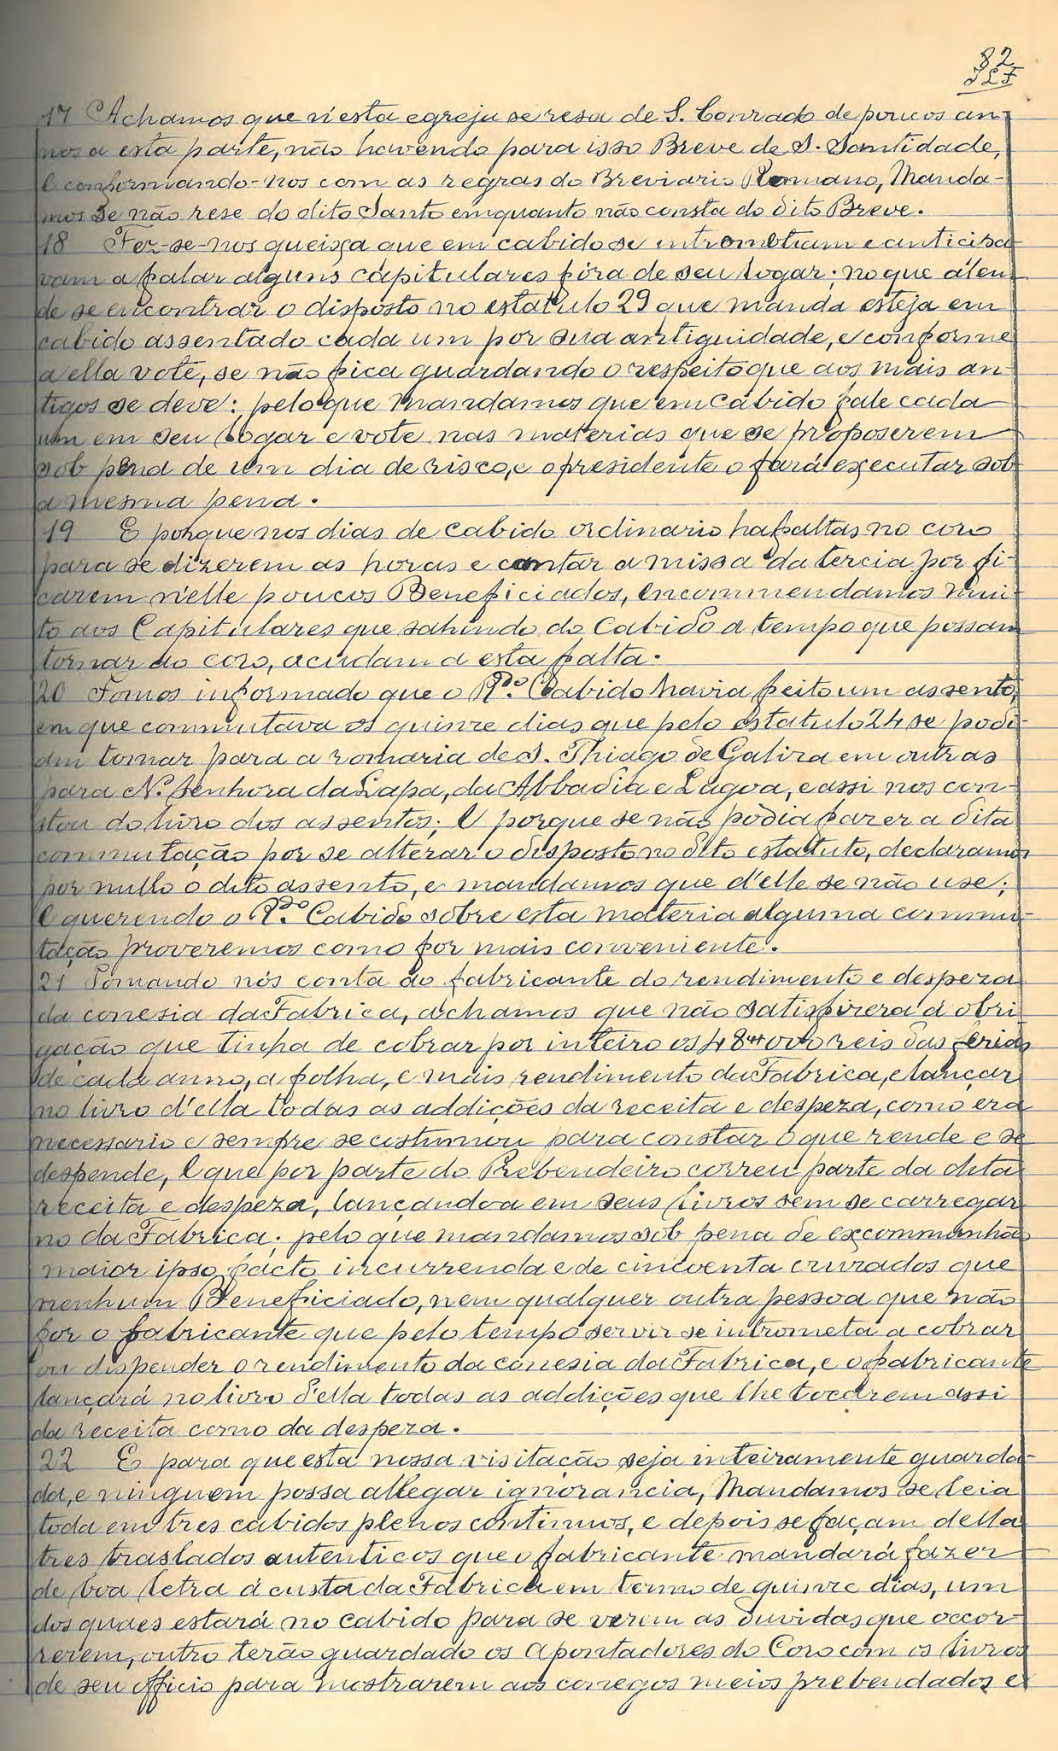 82
17 Achamos que n'esta egreja se resa de S. Conrado de poucos an-
nos a esta parte, não havendo para isso Breve de S. Santidade,
E conformando-nos com as regras do Breviario Romano, Manda-
mos se não rese do dito Santo emquanto não consta do dito Breve.
18 Fez-se-nos queixa que em cabido se intromettiam e anticipa
vam a falar alguns capitulares fóra de seu logar; no que álem
de se encontrar o disposto no estatulo 29 que manda esteja em
cabido assentado cada um por sua antiguidade, e conforme
a ella vote, se não fica guardando o respeito que aos mais an-
tigos se deve: pelo que Mandamos que em cabido fale cada
um em seu logar e vote nas materias que se proposerem
sob pena de um dia de risco, e o presidente o fará executar sob
a mesma pena.
19 E porque nos dias de cabido ordinario ha faltas no coro
para se dizerem as horas e cantar a missa da tercia por fi-
carem n'elle poucos Beneficiados, Encommendamos mui-
to aos Capitulares que sahindo do Cabido a tempo que possam
tornar ao coro, acudam a esta falta.
20 Fomos informado que o R.do Cabido havia feito um assento,
em que commutava os quinze dias que pelo estatulo 24 se podi-
am tomar para a romaria de S. Thiago de Galiza em outras
para N.ª Senhora da Lapa, da Abbadia e Lagoa, e assi nos con-
stou do livro dos assentos; E porque se não podia fazer a dita
commutação por se alterar o disposto no dito estatuto, declaramos
por nullo o dito assento, e mandamos que d'elle se não use;
E querendo o R.do Cabido sobre esta materia alguma commu-
tação proveremos como for mais conveniente.
21 Tomando nós conta ao fabricante do rendimento e despeza
da conesia da Fabrica, achamos que não satisfizera á obri
gação que tinha de cobrar por inteiro os 48 000 reis das ferias
de cada anno, a folha, e mais rendimento da Fabrica, e lançar
no livro d'ella todas as addições da receita e despeza, como era
necessario e sempre se costumou para constar o que rende e se
despende, E que por parte do Prebendeiro correu parte da dita
receita e despeza, lançando-a em seus livros sem se carregar
no da Fabrica; pelo que mandamos sob pena de excommunhão
maior ipso facto incurrenda e de cincoenta cruzados que
nenhum Beneficiado, nem qualquer outra pessoa que não
for o fabricante que pelo tempo servir se intrometa a cobrar
ou dispender o rendimento da conesia da Fabrica, e o fabricante
lançará no livro d'ella todas as addições que lhe tocarem assi
da receita como da despeza.
22 E para que esta nossa visitação seja inteiramente guarda-
da, e ninguem possa allegar ignorancia, Mandamos se leia
toda em tres cabidos plenos continuos, e depois se façam della
tres traslados autenticos que o fabricante mandará fazer
de boa letra á custa da Fabrica em termo de quinze dias, um
dos quaes estará no cabido para se verem as duvidas que occor-
rerem, outro terão guardado os Apontadores do Coro com os livros
de seu officio para mostrarem aos conegos meios prebendados e